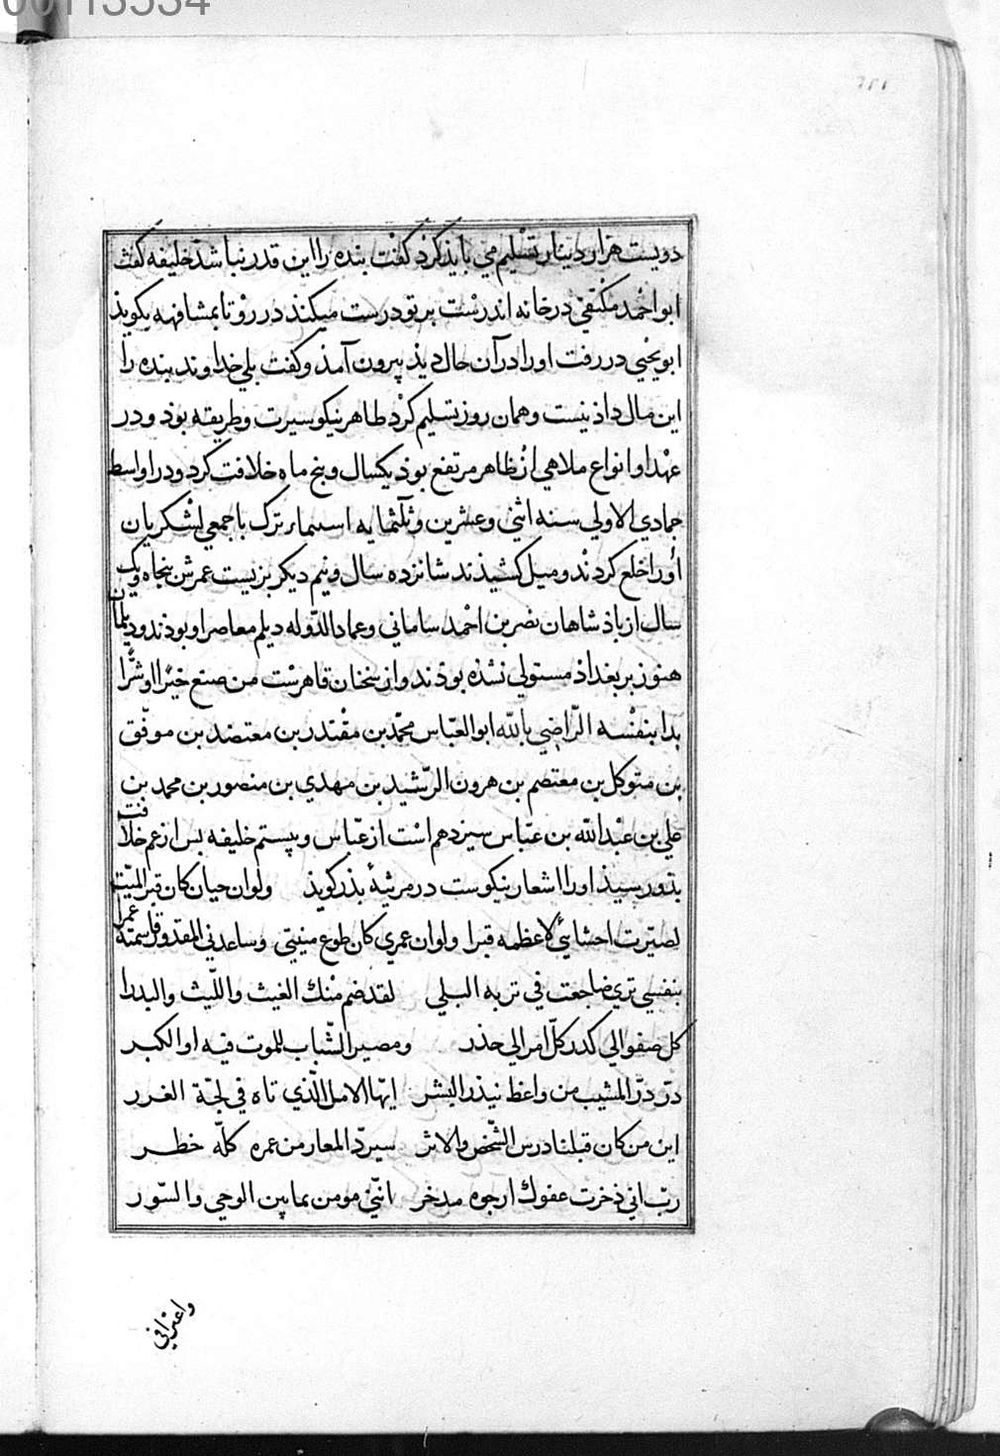 00113534
دویست هزار دینار تسلیم می بایذ کرد کفت بنده را این قدر نباشد خلیفه کفت
ابو احمد مکتفی در خانه اندرست بر تو درست میکند در رو تا بمشافهه بکوید
ابو یحیی در رفت اورا در آن حال دید بیرون آمد و کفت بلی خداوند بنده را
این مال داذنیست و همان روز تسلیم کرد طاهر نیکو سیرت و طریقه بوذ و در
عهد او انواع ملاهی از ظاهر مرتفع بوذ یکسال و پنج ماه خلافت کرد و در اواسط
جمادی الاولی سنه اثنی وعشرین وثلثمایه اسیمار ترک با جمعی لشکریان
اورا خلع کردند و میل کشیذند شانزده سال و نیم دیکر بزیست عمرش پنجاه و یک
سال از باذشاهان نصر بن احمد سامانی و عماد الدوله دیلم معاصر او بوذند و دیلمان
هنوز بر بغداذ مستولی نشذه بوذند و از سخنان قاهرست من صنع خیرا او شرا
بدا بنفسه الراضی بالله ابو العباس محمد بن مقتدر بن معتضد بن موفق
بن متوکل بن معتصم بن هرون الرشید بن مهدی بن منصور بن محمد بن
علی بن عبد الله بن عباس سیزدهم است از عباس و بیستم خلیفه بس از عم خلافت
بذو رسیذ اورا اشعار نیکوست در مرثیۀ بذر کوید ولو ان حیا کان قبر المیت
لصیرت احشایی لاعظمه قبرا ولو ان عمری کان طوع منیتی وساعدنی المقدور قاسمته عمرا
بنفسی تری ضاجعت فی تربه البلی لقد ضم منک الغیث واللیث والبدرا
کل صفو الی کدر کل امر الی حذر ومصیر الشباب للموت فیه او الکبر
در در المشیب من واعظ ینذر البشر ایها الامل الذی تاه فی لجة الغرر
این من کان قبلنا درس الشخص والاثر سیرد المعار من عمره کله خطر
رب انی ذخرت عفوک ارجوه مدخر اننی مومن بما بین الوحی والسور
واعترافی